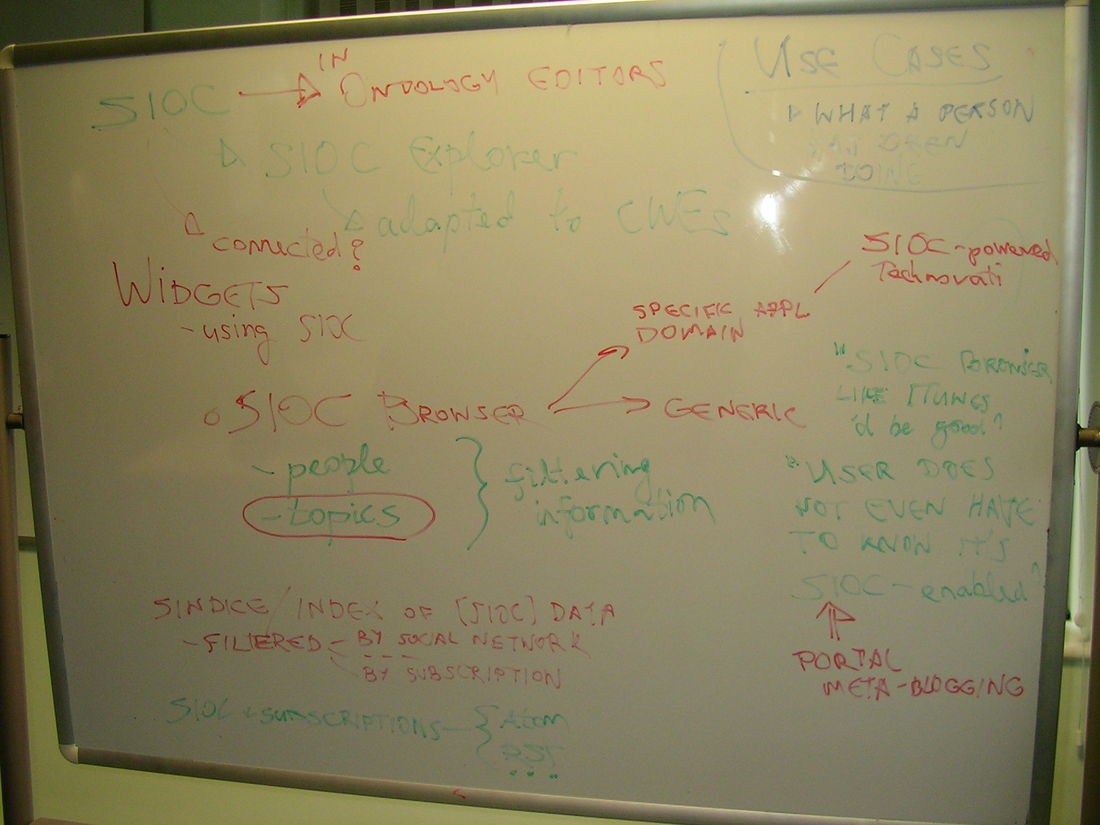 SIOC → IN ONTOLOGY EDITORS
SIOC Explorer
adapted to CWEs
connected?
WIDGETS
- using SIOC
USE CASES
WHAT A PERSON
DOING
SIOC-powered
Technorati
SPECIFIC APPL
DOMAIN
SIOC BROWSER
GENERIC
- people
- topics
filtering
information
"SIOC BROWSER
LIKE ITUNES
'd be good"
"USER DOES
NOT EVEN HAVE
TO KNOW IT'S
SIOC-enabled"
PORTAL
META-BLOGGING
SINDICE / INDEX OF [SIOC] DATA
- FILTERED - BY SOCIAL NETWORK
- BY SUBSCRIPTION
SIOC + SUBSCRIPTIONS - { Atom
RSS
...